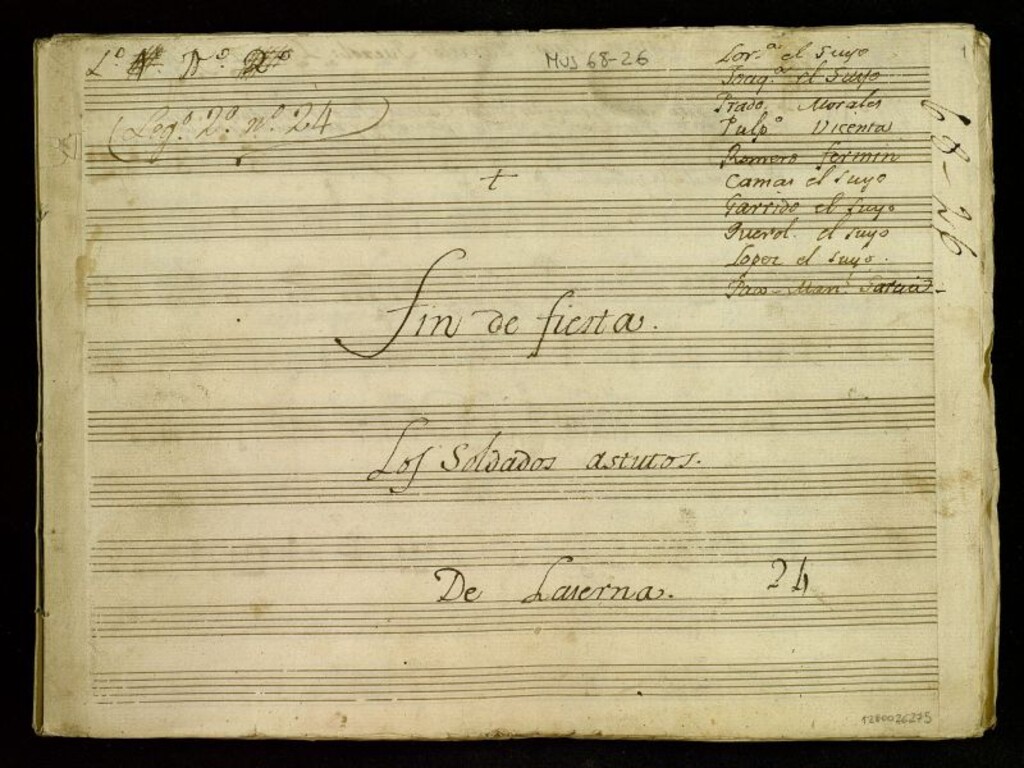 L.º N.º
MUS 68-26
1
(Leg.º 2.º n.º 24)
Lor.ª el suyo
Joaq.ª el suyo
Prado. Morales
Pulp.º Vicenta
Romero fermin
Camas el suyo
Garrido el suyo
Querol. el suyo
Lopez el suyo.
Paco Man.l Garcia
68-26
+
Fin de fiesta.
Los Soldados astutos.
De Laserna.
24
1200026275